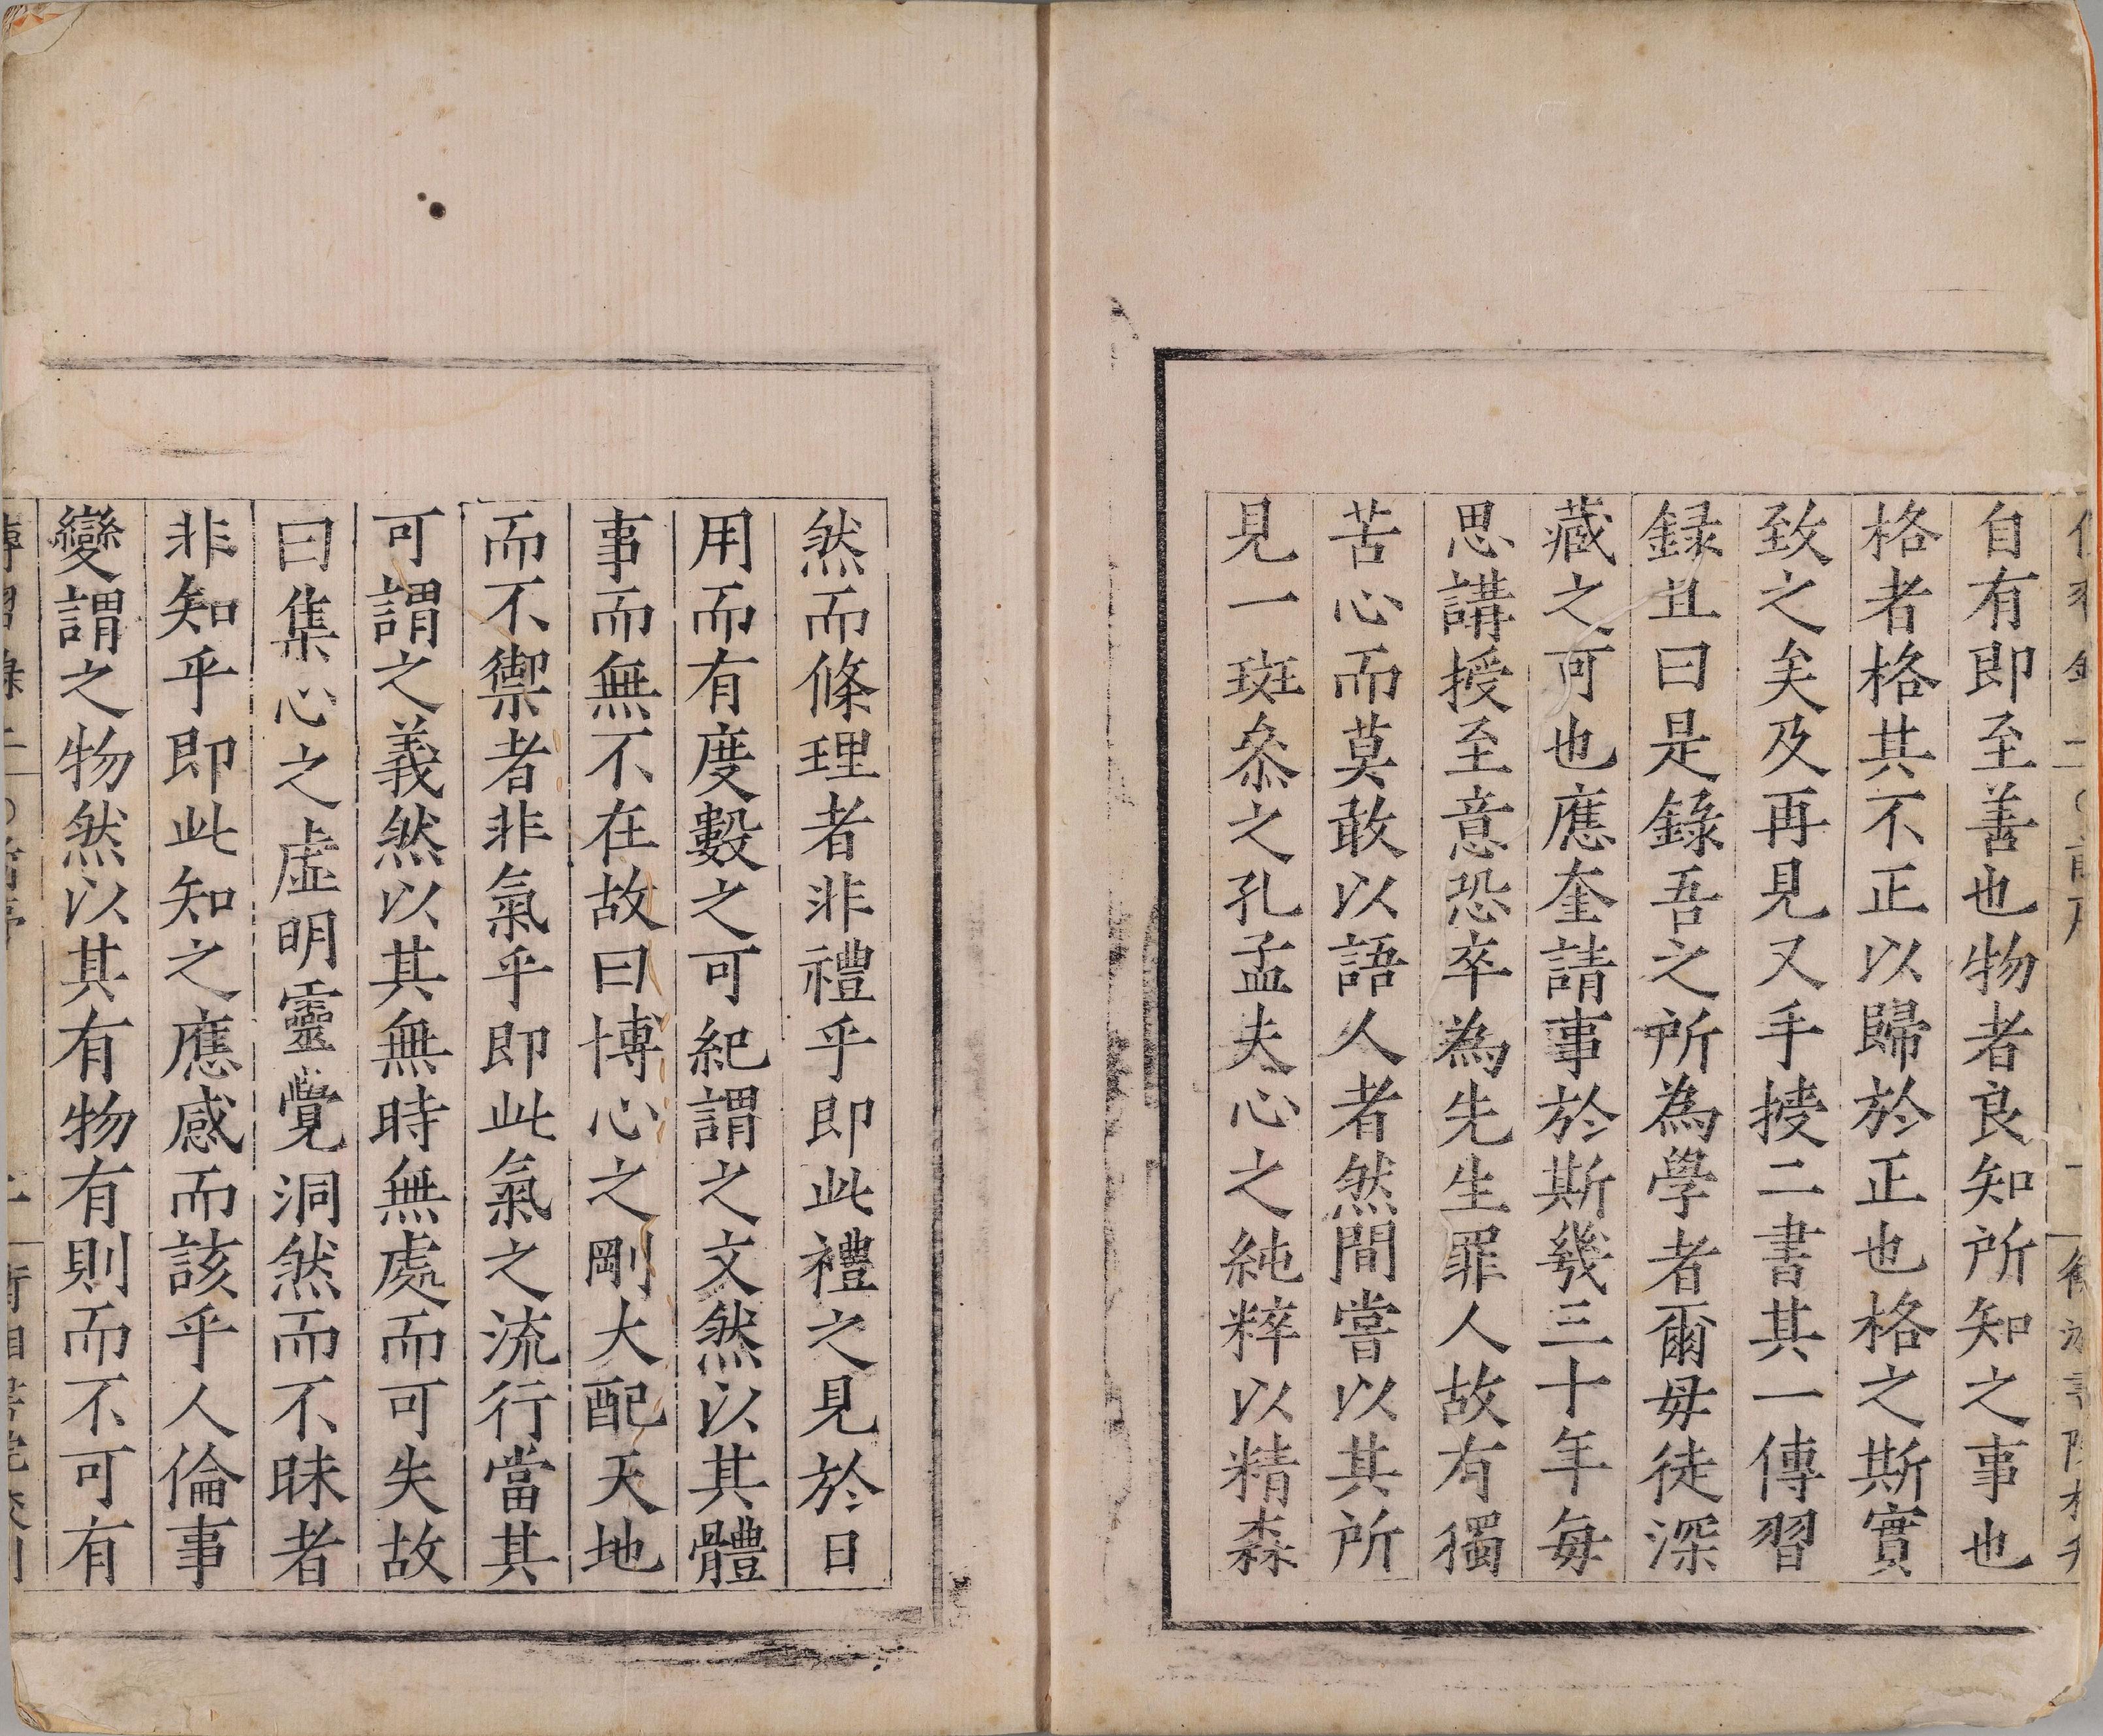 自有即至善也物者良知所知之事也
格者格其不正以歸於正也格之斯實
致之矣及再見又手授二書其一傳習
録且曰是錄吾之所為學者爾毋徒深
藏之可也應奎請事於斯幾三十年每
思講授至意恐卒為先生罪人故有獨
苦心而莫敢以語人者然間嘗以其所
見一斑叅之孔孟夫心之純粹以精森
然而條理者非禮乎即此禮之見於日
用而有度數之可紀謂之文然以其體
事而無不在故曰博心之剛大配天地
而不禦者非氣乎即此氣之流行當其
可謂之義然以其無時無處而可失故
曰集心之虛明靈覺洞然而不昧者
非知乎即此知之應感而該乎人倫事
變謂之物然以其有物有則而不可有